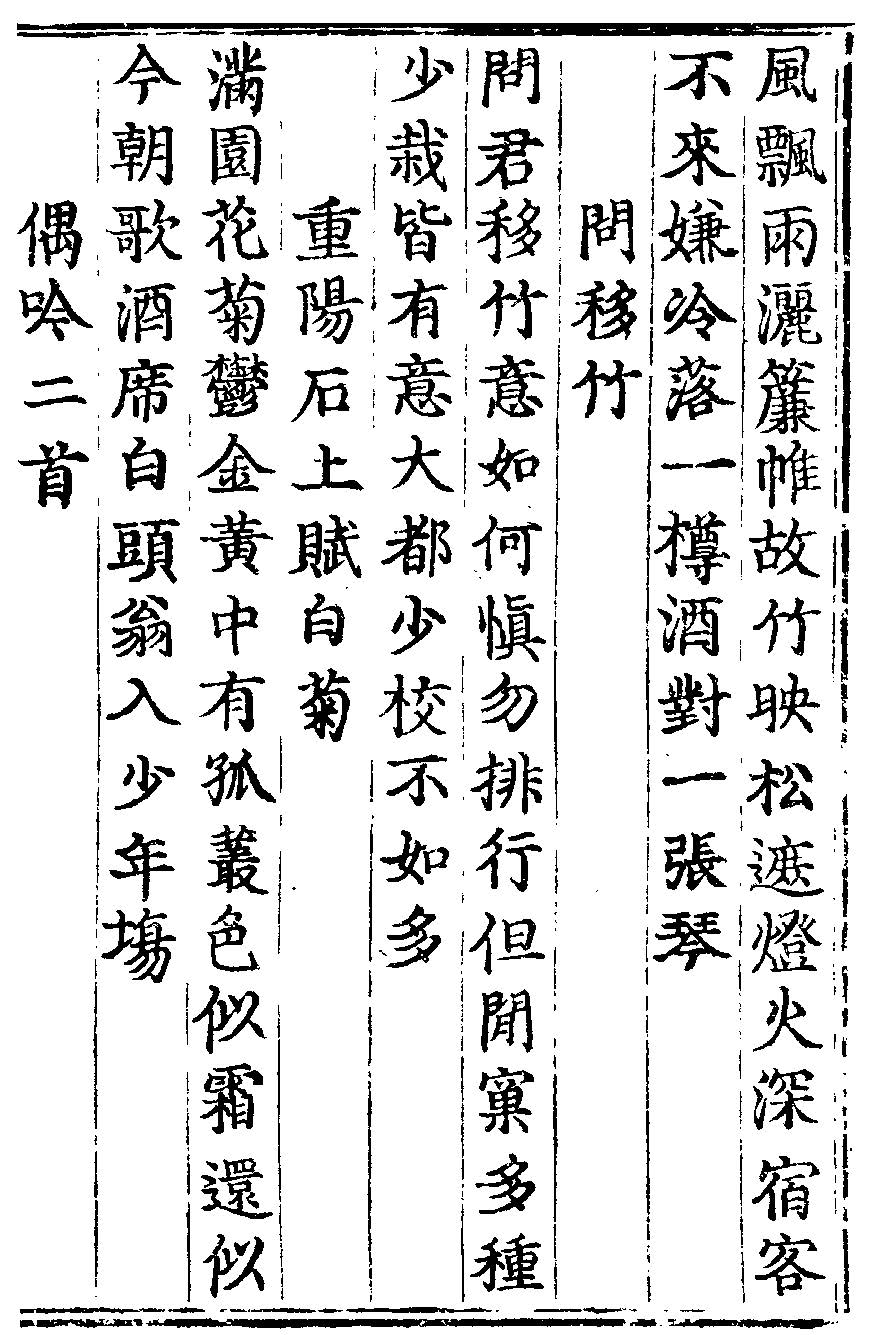 風飄雨灑簾帷故竹映松遮燈火深宿客
不來嫌冷落一樽酒對一張琴
問移竹
問君移竹意如何慎勿排行但閒窠多種
少栽皆有意大都少校不如多
重陽石上賦白菊
滿園花菊鬱金黃中有孤叢色似霜還似
今朝歌酒席白頭翁入少年塲
偶吟二首